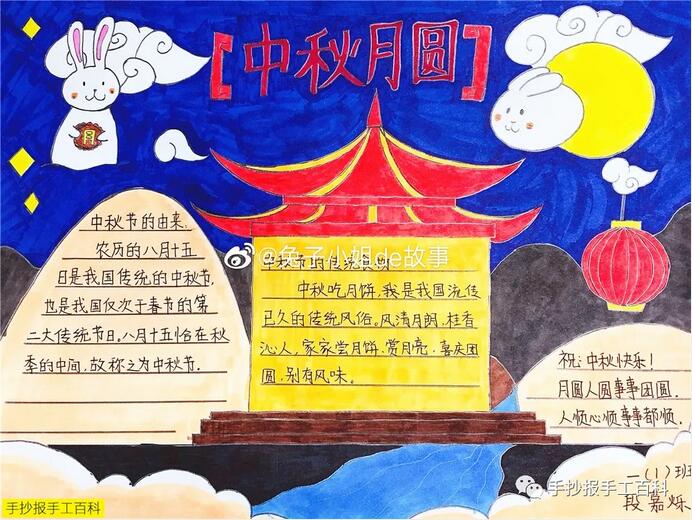 【中秋月圆】
中秋节的由来,
农历的八月十五
日是我国传统的中秋节,
也是我国仅次于春节的第
二大传统节日。八月十五恰在秋
季的中间,故称之为中秋节.
@兔子小姐de故事
中秋节的传统食
中秋吃月饼,我是我国流传
已久的传统风俗。风清月朗,桂香
沁人,家家尝月饼,赏月亮,喜庆团
圆,别有风味。
祝:中秋快乐!
月圆人圆事事团圆.
人顺心顺事事都顺.
一(1)班
段嘉烁
手抄报手工百科
手抄报手工百科